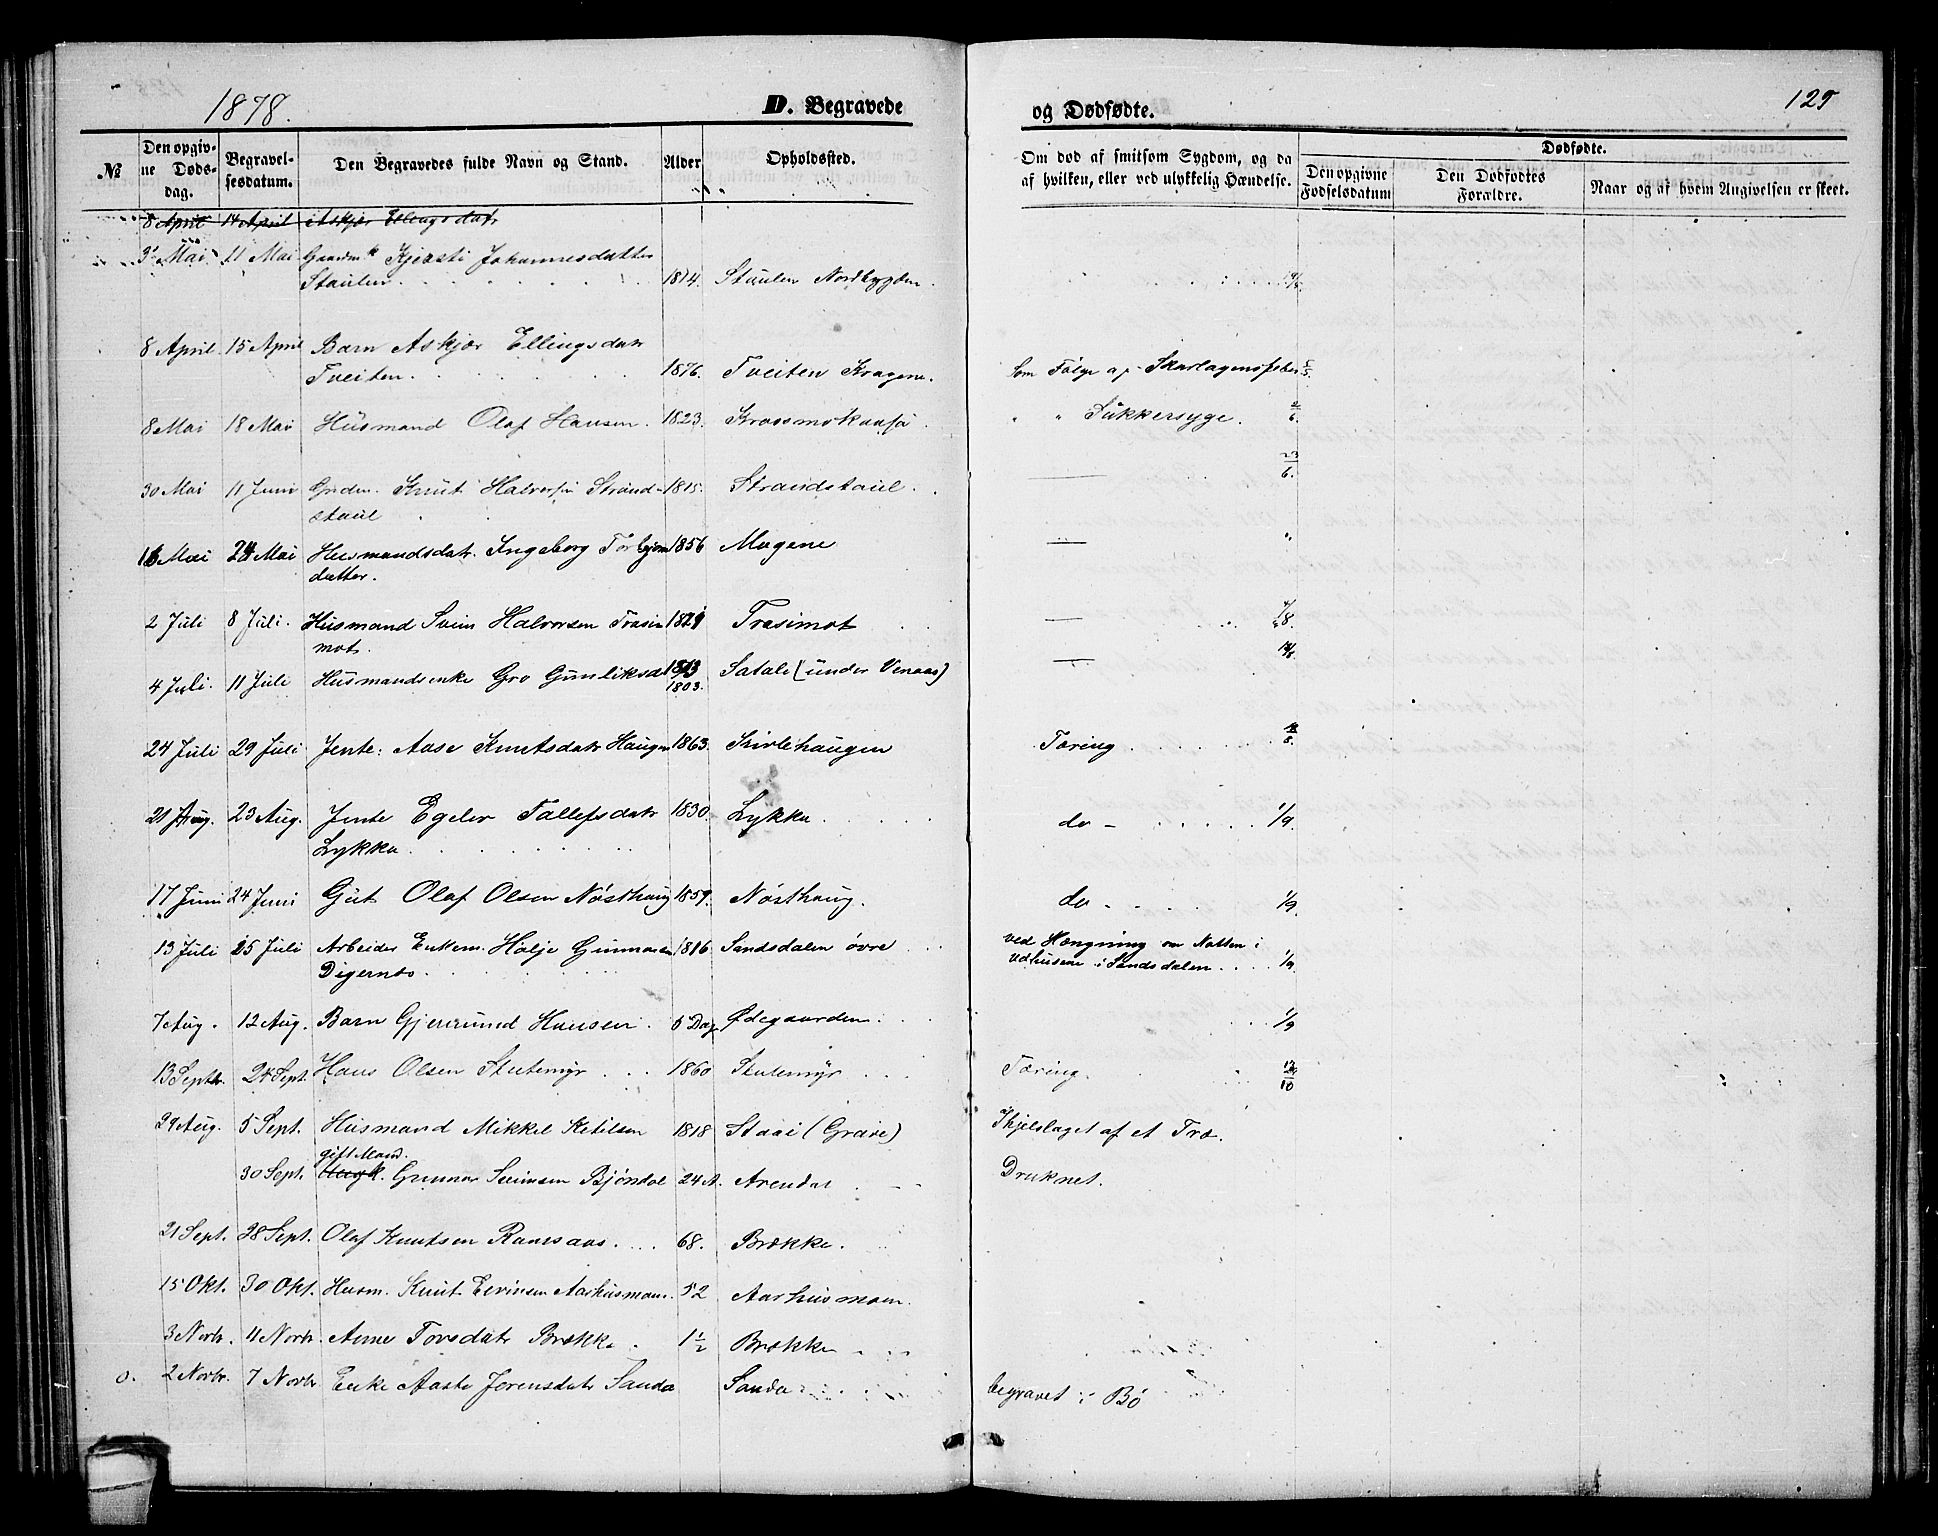 1878.
D. Begravede
og Dødfødte.
129
№
Den opgivne Dødsdag.
Begravelsesdatum.
Den Begravedes fulde Navn og Stand.
Alder
Opholdssted.
Om død af smitsom Sygdom, og da af hvilken, eller ved ulykkelig Hændelse.
Dødfødte.
Den opgivne Fødselsdatum
Den Dødfødtes Forældre.
Naar og af hvem Angivelsen er skeet.
8 April 14 April Askjær Ellingsdatr
3 Mai 11 Mai Gaardmk Kjersti Johannesdatter
Staulen 1814. Staulen Nordbygden.
8 April 15 April Barn Askjær Ellingsdatr
Tveiten. 1876. Tveiten Kragene. Som Følge af Skarlagensfeber
8 Mai 18 Mai Husmand Olaf Hansen. 1823. " " Sukkersyge. 2/6.
30 Mai 11 Juni Knut Halvorsen Strand- 1815. Strandstaul. — 23/6.
staul
16 Mai 24 Mai Husmandsdatr. Ingeborg Torbjørns 1856 Mogene — "
datter.
2 Juli 8 Juli. Husmand Svein Halvorsen Trasi 1821 Trasimot —
mot.
4 Juli. 11 Juli Husmandsenke Gro Gunliksd 1803. Satale (under Venaas) —
24 Juli 29 Juli Jente: Aase Knutsdatr Haugen 1863. Kirlehaugen Tæring
21 Aug. 23 Aug. Jente Egelev Tallefsdatr 1830. Lykka. do - 1/9.
Lykka.
17 Juni 24 Juni Gut Olaf Olsen Nøsthaug 1859. Nøsthaug. do - 1/9.
13 Juli 25 Juli Arbeider Enkem. Holje Gunnarsen 1816. Sandsdalen øvre ved Hængning om Natten i
Digernes. Udhusene i Sandsdalen 1/9
7 Aug. 12 Aug. Barn Gjermund Hansen. 6 Dag Ødegaarden. 1/9
13 Septbr. 24 Sept. Hans Olsen Stutemyr 1860 Stutemyr Tæring.
29 Aug. 5 Sept. Husmand Mikkel Ketilsen 1818 Staai (Grave) Ihjelslaget af et Træ.
gift Mand.
30 Sept. Ungk. Gunnar Sveinsen Bjøndal 24 A. Arendal Druknet.
21 Sept. 28 Sept. Olaf Knudsen Ramsaas. 68. Brække.
15 Okt. 30 Okt. Husm. Knut Eivinsen Aarhusmoen. 52 Aarhusmoen.
3 Novbr. 4 Novbr. Anne Torsdatr Brække. 1 1/2 Brække
0. 2 Novbr. 7 Novbr. Enke Aaste Jorensdatr Sanda Sanda begravet i Bø